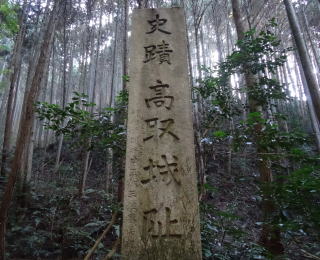 史蹟高取城址